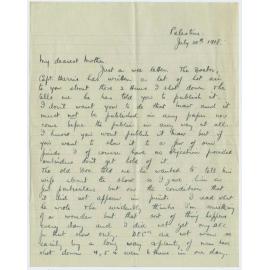 Palestine
July 20th 1918.
My dearest Mother
Just a wee letter. The Doctor,
Capt. Harris has written a lot of hot air
to you about those 2 Huns I shot down. He
tells me he has told you to publish it.
I don't want you to do that Mum and it
must not be published in any paper nor
come before the public in any way at all.
I know you won't publish it Mum but if
you want to show it to a few of our
friends I of course have no objection provided
outsiders don't get hold of it.
The old Doc told me he wanted to tell his
wife about the show so I gave him a
few particulars but on the condition that
it did not appear in print. I read what
he wrote. The thinks I'm something
of a wonder but that sort of thing happens
every day and I did not get my DFC
in that show only. DFC's are not won so
easily by a long way. Airmen, of now have
shot down 4, 5 & even 6 Huns in one day.